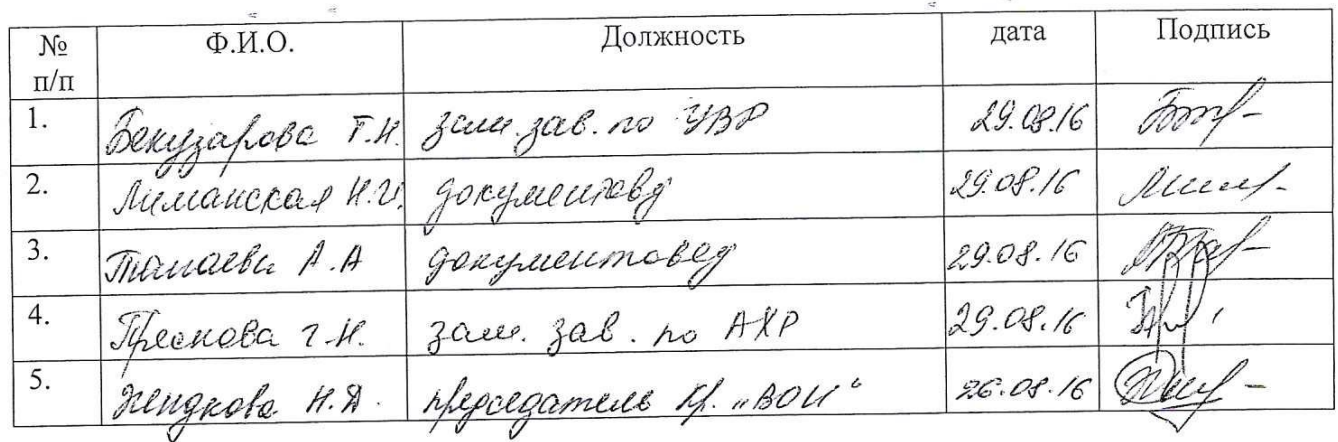 № п/п Ф.И.О. Должность дата Подпись
1. Бекузарова Т.Н. зам. зав. по УВР 29.08.16
2. Лиманская Н.И. документовед 29.08.16
3. А.А документовед 29.08.16
4. Г.Н. зам. зав. по АХР 29.08.16
5. Н.Д. председатель "ВОИ" 26.08.16